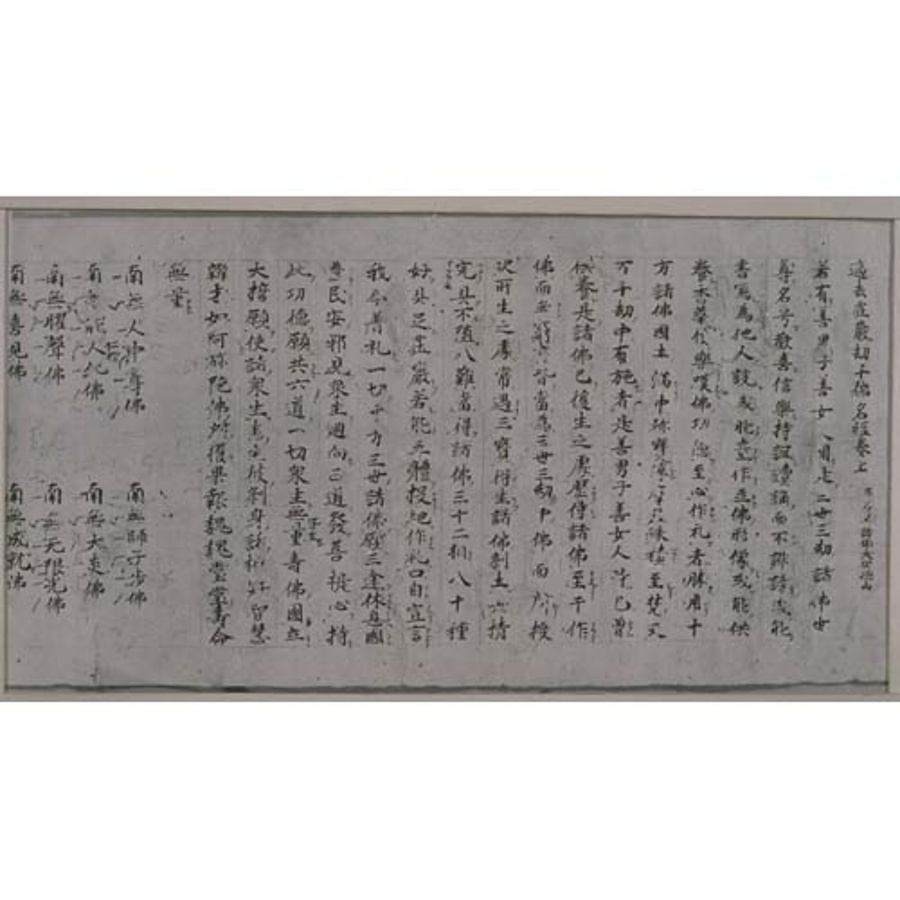 過去莊嚴劫千佛名經卷上
若有善男子善女人聞是三世三劫諸佛世
尊名号歡喜信樂持諷讀誦而不誹謗或能
書寫為他人說或能畫作立佛形像或能供
養香華伎樂嘆佛功德至心作礼者勝用十
方諸佛國土滿中珎寶 積至梵天
百千劫中布施者是善男子善女人等已曾
供養是諸佛已後生之處歷侍諸佛至于作
佛而無窮盡皆當為三世三劫中佛而所授
決所生之處常遇三寶得生諸佛剎土六情
完具不墮八難當得諸佛三十二相八十種
好具足莊嚴若能五體投地作礼口自宣言
我今普礼一切十方三世諸佛願三塗休息國
豊民安邪見衆生迴向正道發菩提心持
此功德願共六道一切衆生生無量壽佛國立
大誓願使諸衆生悉生彼剎身諸相好智慧
辯才如阿弥陀佛所獲果報巍巍堂堂壽命
無量
南無人中尊佛 南無師子步佛
南無能人化佛 南無大 佛
南無曜聲佛 南無无限光佛
南無喜見佛 南無成就佛